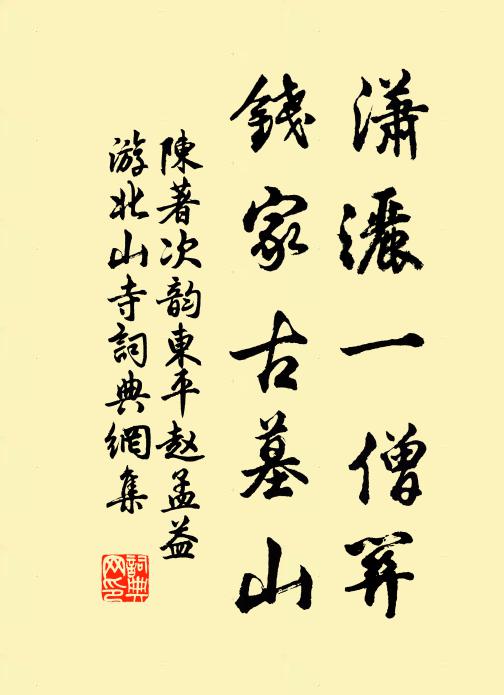 瀟灑一僧關
錢家古墓山
陳著次韵東平趙孟益
游北山寺詞典網集
詞典
网印